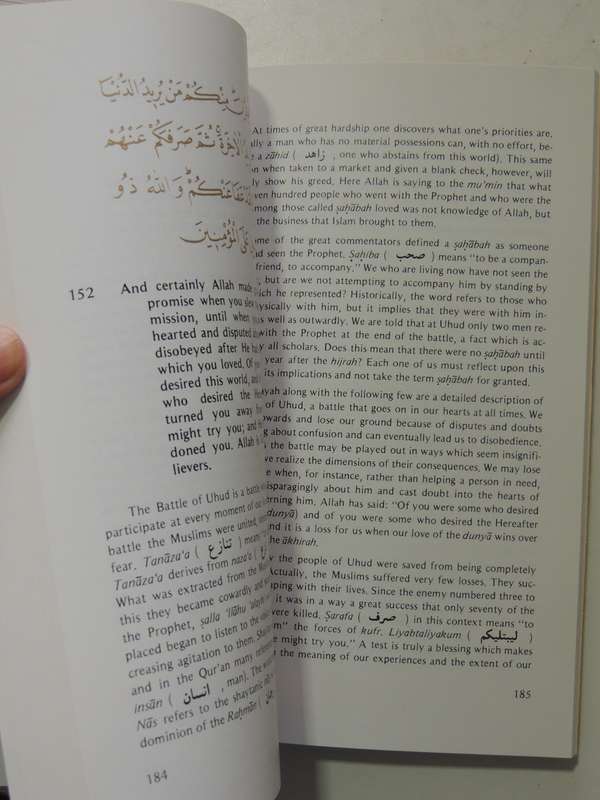 مِنْكُمْ مَنْ يُرِيدُ الدُّنْيَا
الْآخِرَةَ ثُمَّ صَرَفَكُمْ عَنْهُمْ
عَفَا عَنْكُمْ وَاللَّهُ ذُو
عَلَى الْمُؤْمِنِينَ
152 And certainly Allah made
promise when you slew
mission, until when
hearted and disputed
disobeyed after He
which you loved. Of
desired this world, and
who desired the
turned you away
might try you; and
doned you. Allah
lievers.
The Battle of Uhud is a battle
participate at every moment of
battle the Muslims were united,
fear. Tanāza'a ( تنازع )
Tanāza'a derives from naza'a (
What was extracted from the
this they became cowardly and
the Prophet, ṣalla 'llāhu 'alayhi
placed began to listen to the
creasing agitation to them.
and in the Qur'an many
insān ( انسان , man). The
Nās refers to the shayṭanic
dominion of the Raḥmān (
184
At times of great hardship one discovers what one's priorities are.
a man who has no material possessions can, with no effort, be-
a zāhid ( زاهد , one who abstains from this world). This same
when taken to a market and given a blank check, however, will
show his greed. Here Allah is saying to the mu'min that what
hundred people who went with the Prophet and who were the
among those called ṣaḥābah loved was not knowledge of Allah, but
the business that Islam brought to them.
some of the great commentators defined a ṣaḥābah as someone
had seen the Prophet. Ṣaḥiba ( صحب ) means "to be a compan-
friend, to accompany." We who are living now have not seen the
but are we not attempting to accompany him by standing by
he represented? Historically, the word refers to those who
physically with him, but it implies that they were with him in-
as well as outwardly. We are told that at Uhud only two men re-
with the Prophet at the end of the battle, a fact which is ac-
by all scholars. Does this mean that there were no ṣaḥābah until
year after the hijrah? Each one of us must reflect upon this
its implications and not take the term ṣaḥābah for granted.
along with the following few are a detailed description of
of Uhud, a battle that goes on in our hearts at all times. We
cowards and lose our ground because of disputes and doubts
about confusion and can eventually lead us to disobedience.
the battle may be played out in ways which seem insignifi-
realize the dimensions of their consequences. We may lose
when, for instance, rather than helping a person in need,
disparagingly about him and cast doubt into the hearts of
him. Allah has said: "Of you were some who desired
dunyā) and of you were some who desired the Hereafter
and it is a loss for us when our love of the dunyā wins over
the ākhirah.
the people of Uhud were saved from being completely
Actually, the Muslims suffered very few losses. They suc-
with their lives. Since the enemy numbered three to
it was in a way a great success that only seventy of the
were killed. Ṣarafa ( صرف ) in this context means "to
the forces of kufr. Liyabtaliyakum ( ليبتليكم )
might try you." A test is truly a blessing which makes
the meaning of our experiences and the extent of our
185